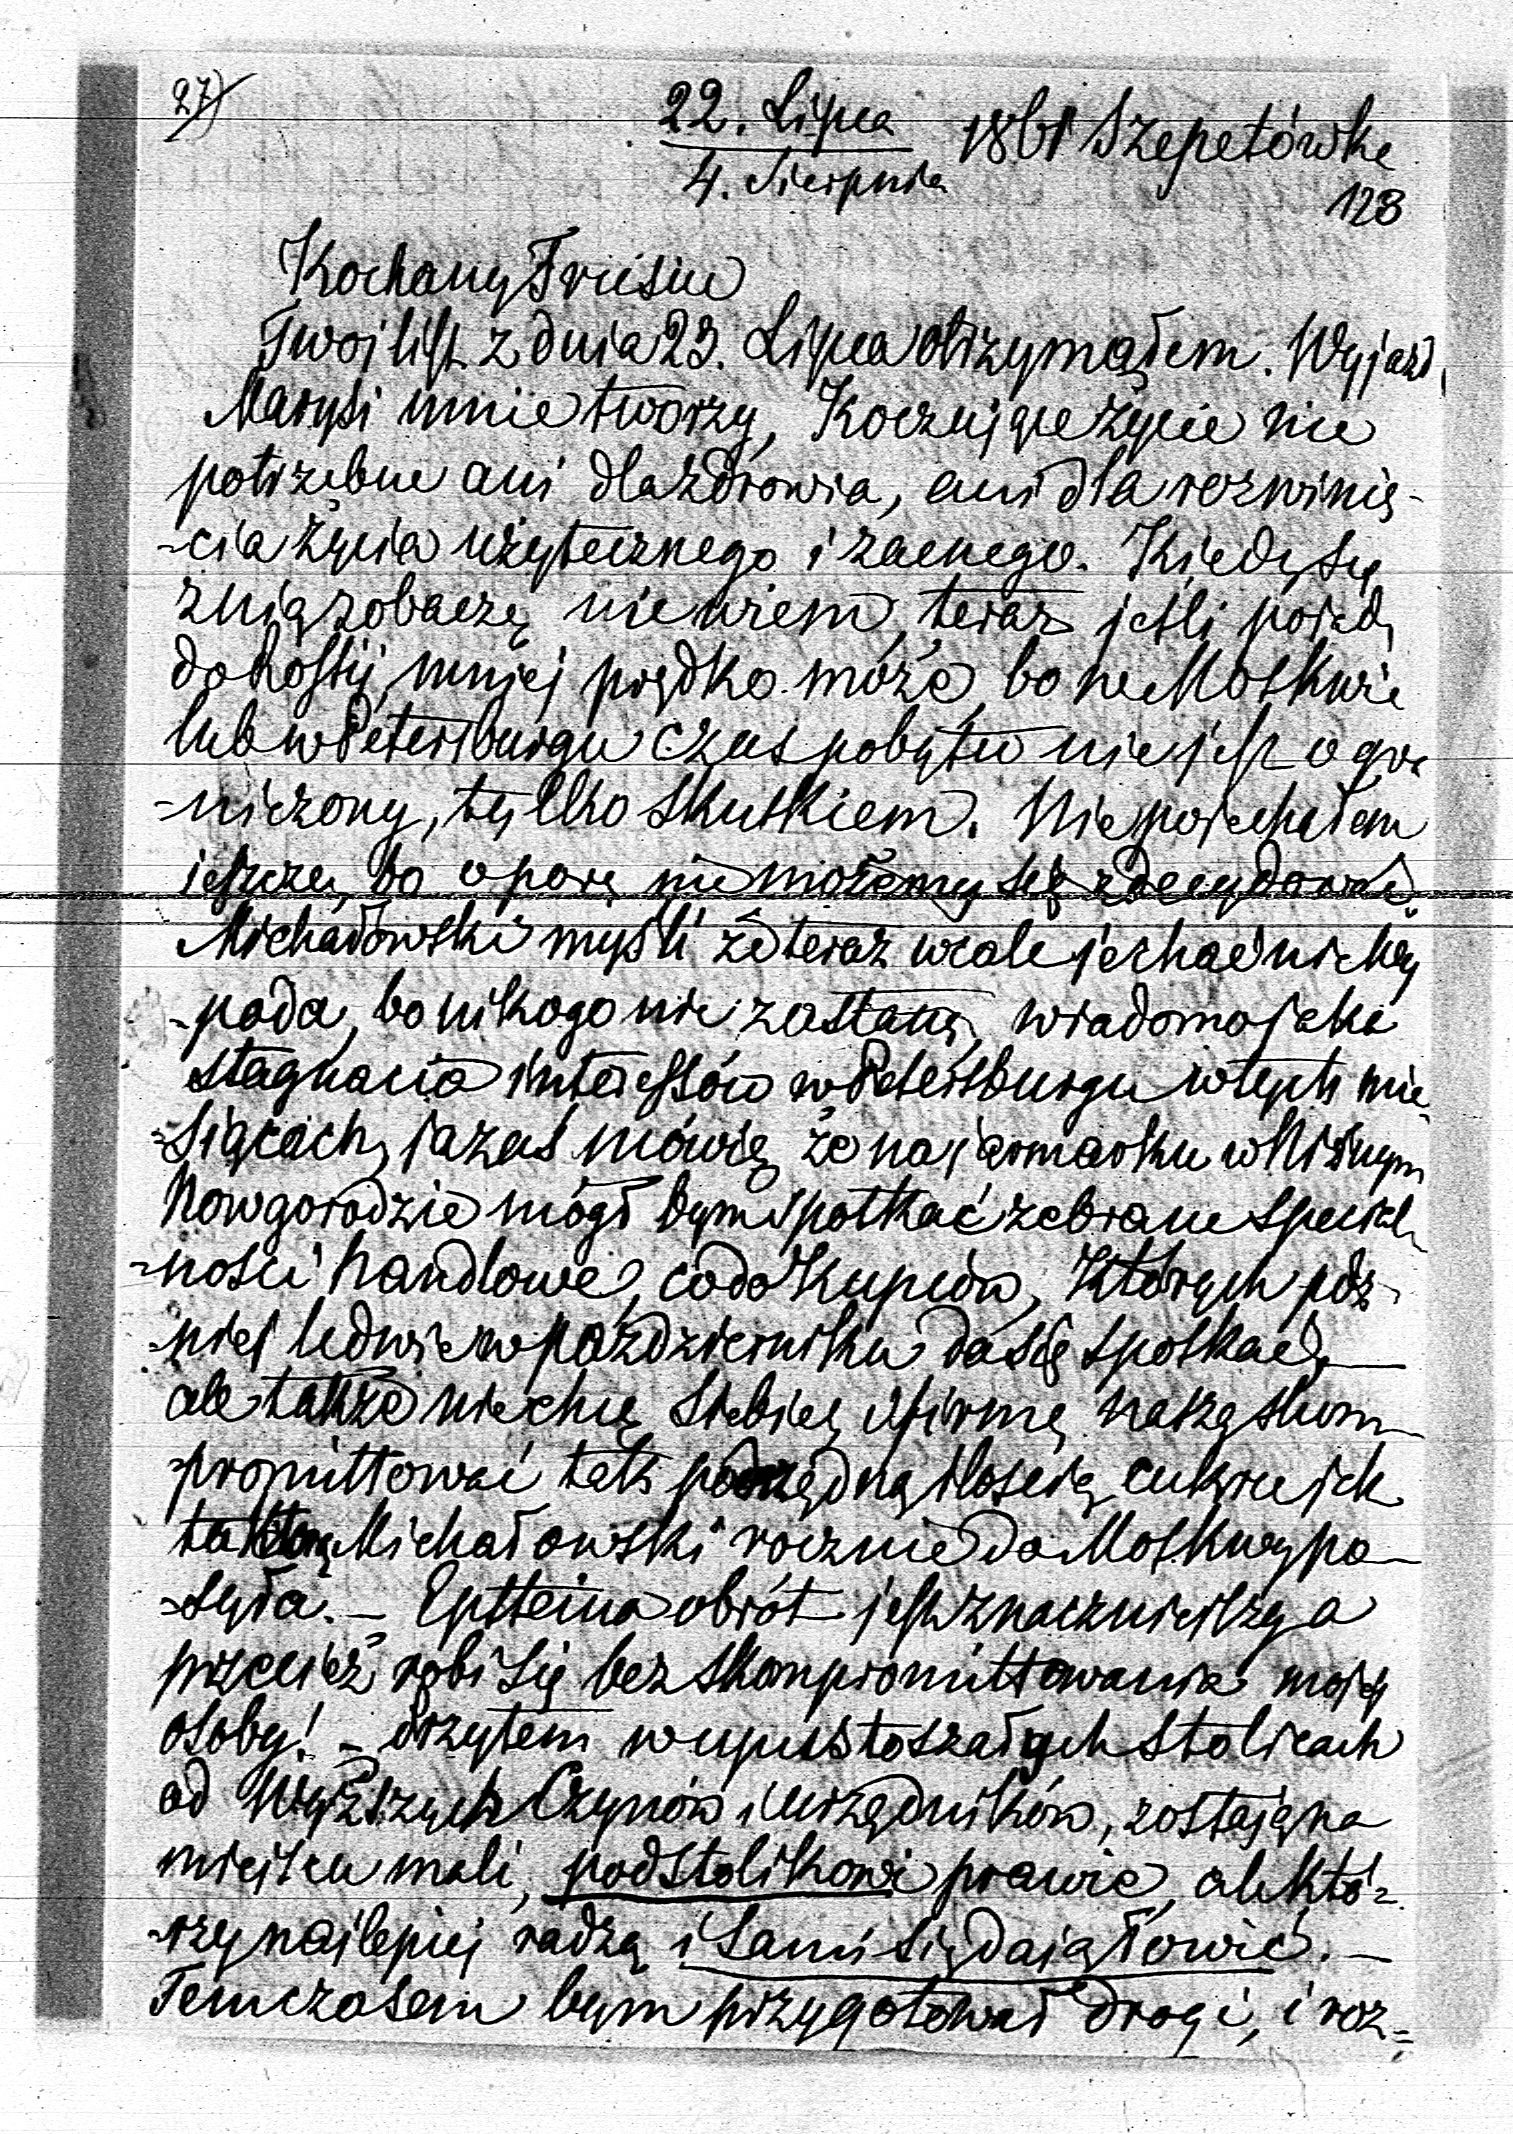 27)
22. Lipca 1861 Szepetówka
4. Sierpnia
128
Kochany Frusiu
Twój list z dnia 23. Lipca otrzymałem. Wyjazd
Marysi mnie tworzy, Koczujące życie nie
potrzebne ani dla zdrowia, ani dla rozwinię-
-cia życia użytecznego i zacnego. Kiedy się
z nią zobaczę nie wiem, teraz jeśli pojadę
do Rossij, mniej prędko może, bo w Moskwie
lub w Petersburgu czas pobytu nie jest ogra
-niczony, tylko skutkiem. Nie pojechałem
jeszcze, bo o porę nie możemy się zdecydować
Michałowski myśli że teraz wcale jechać nie wy
-pada, bo nikogo nie zastanę, wiadoma jaka
stagnacia interessów w Petersburgu w tych mie
-siącach, ja zaś mówię że na jarmarku w Niżnym
Nowgorodzie mógł bym spotkać zebrane special
-ności handlowe, co do Kupców, których póź-
-niej ledwie w październiku da się spotkać, —
ale także nie chcę siebie, i firmę naszą skom-
-promittować tak podrzędną ilością cukru jak
taktorą Michałowski rocznie do Moskwy po-
-syła. — Epsteina obrót jest znaczniejszy a
przecież robi się bez skompromittowania mojej
osoby! — Przytem w upustoszałych stolicach
od Wyższych Czynów i urzędników, zostają na
miejscu mali, podstolikowi prawie, ale któ-
-rzy najlepiej radzą i sami się dają łowić. —
Temczasem bym przygotował drogi, i roz=